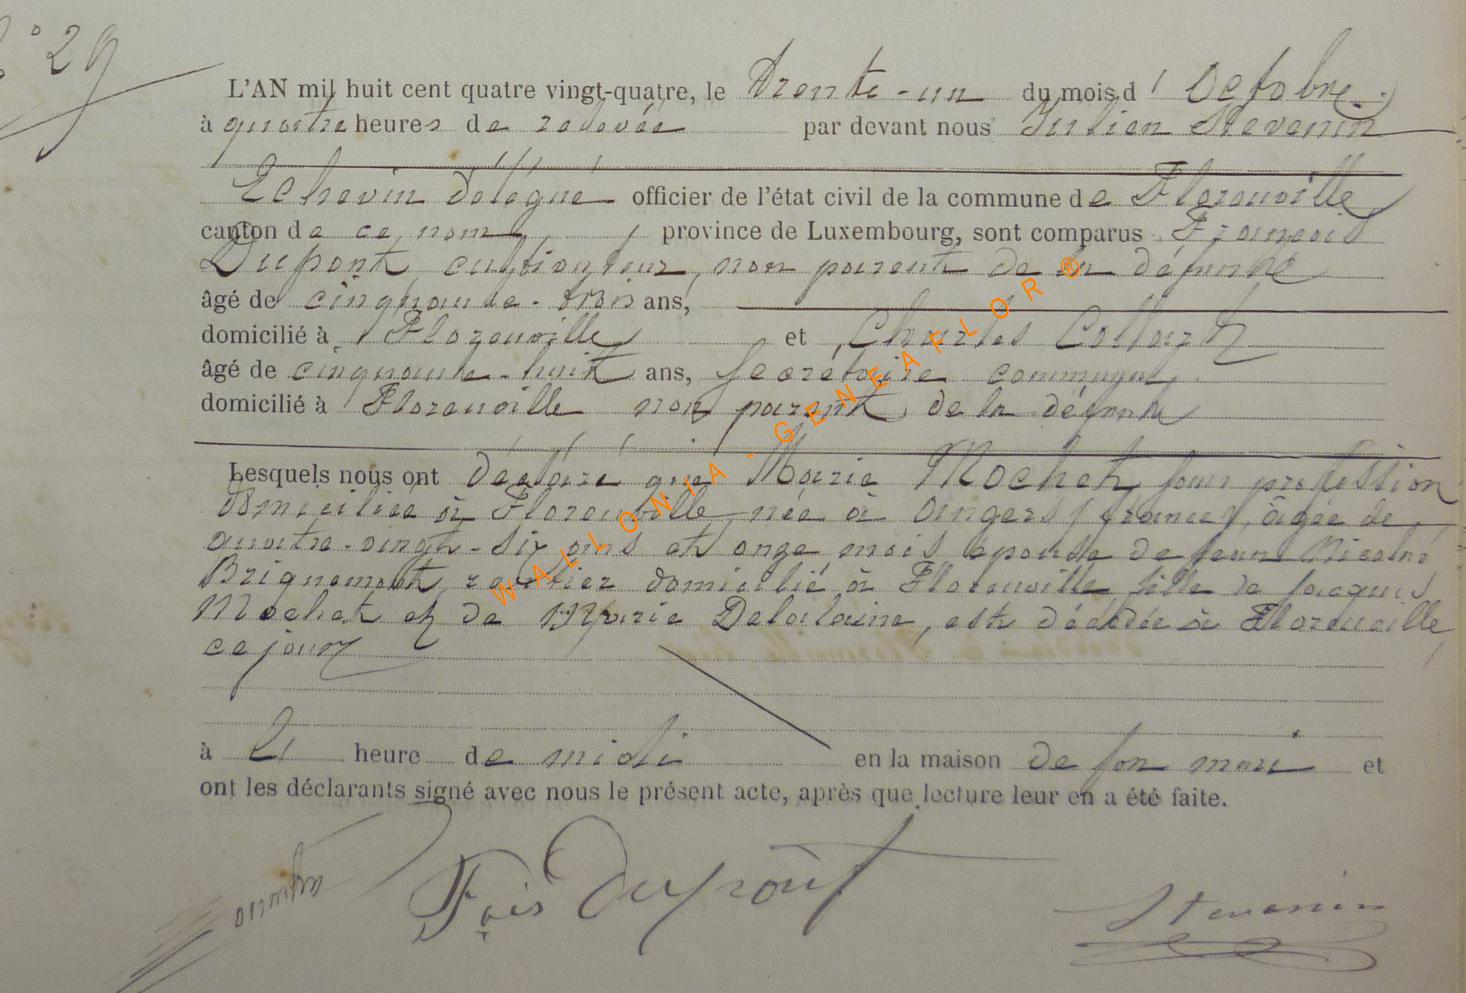 N° 29
L'AN mil huit cent quatre vingt-quatre, le trente-un du mois d'Octobre
à quatre heures de relevée par devant nous Julien Stevenin
Echevin délégué officier de l'état civil de la commune de Florenville
canton de ce nom, province de Luxembourg, sont comparus François
Dupont, cultivateur, non parent de la défunte
âgé de cinquante-trois ans,
domicilié à Florenville et Charles Collard
âgé de cinquante-huit ans, Secrétaire communal,
domicilié à Florenville non parent de la défunte
Lesquels nous ont déclaré que Marie Mochet, sans profession
domiciliée à Florenville, née à Angers (france), âgée de
quatre-vingt-six ans et onze mois épouse de Jean Nicolas
Brignemont, rentier domicilié à Florenville fille de Jacques
Mochet et de Marie Delalaine, est décédée à Florenville,
ce jour
à heure de midi en la maison de son mari et
ont les déclarants signé avec nous le présent acte, après que lecture leur en a été faite.
Fçois Dupont
Stevenin
WALLONIA - GENEAFLOR ®